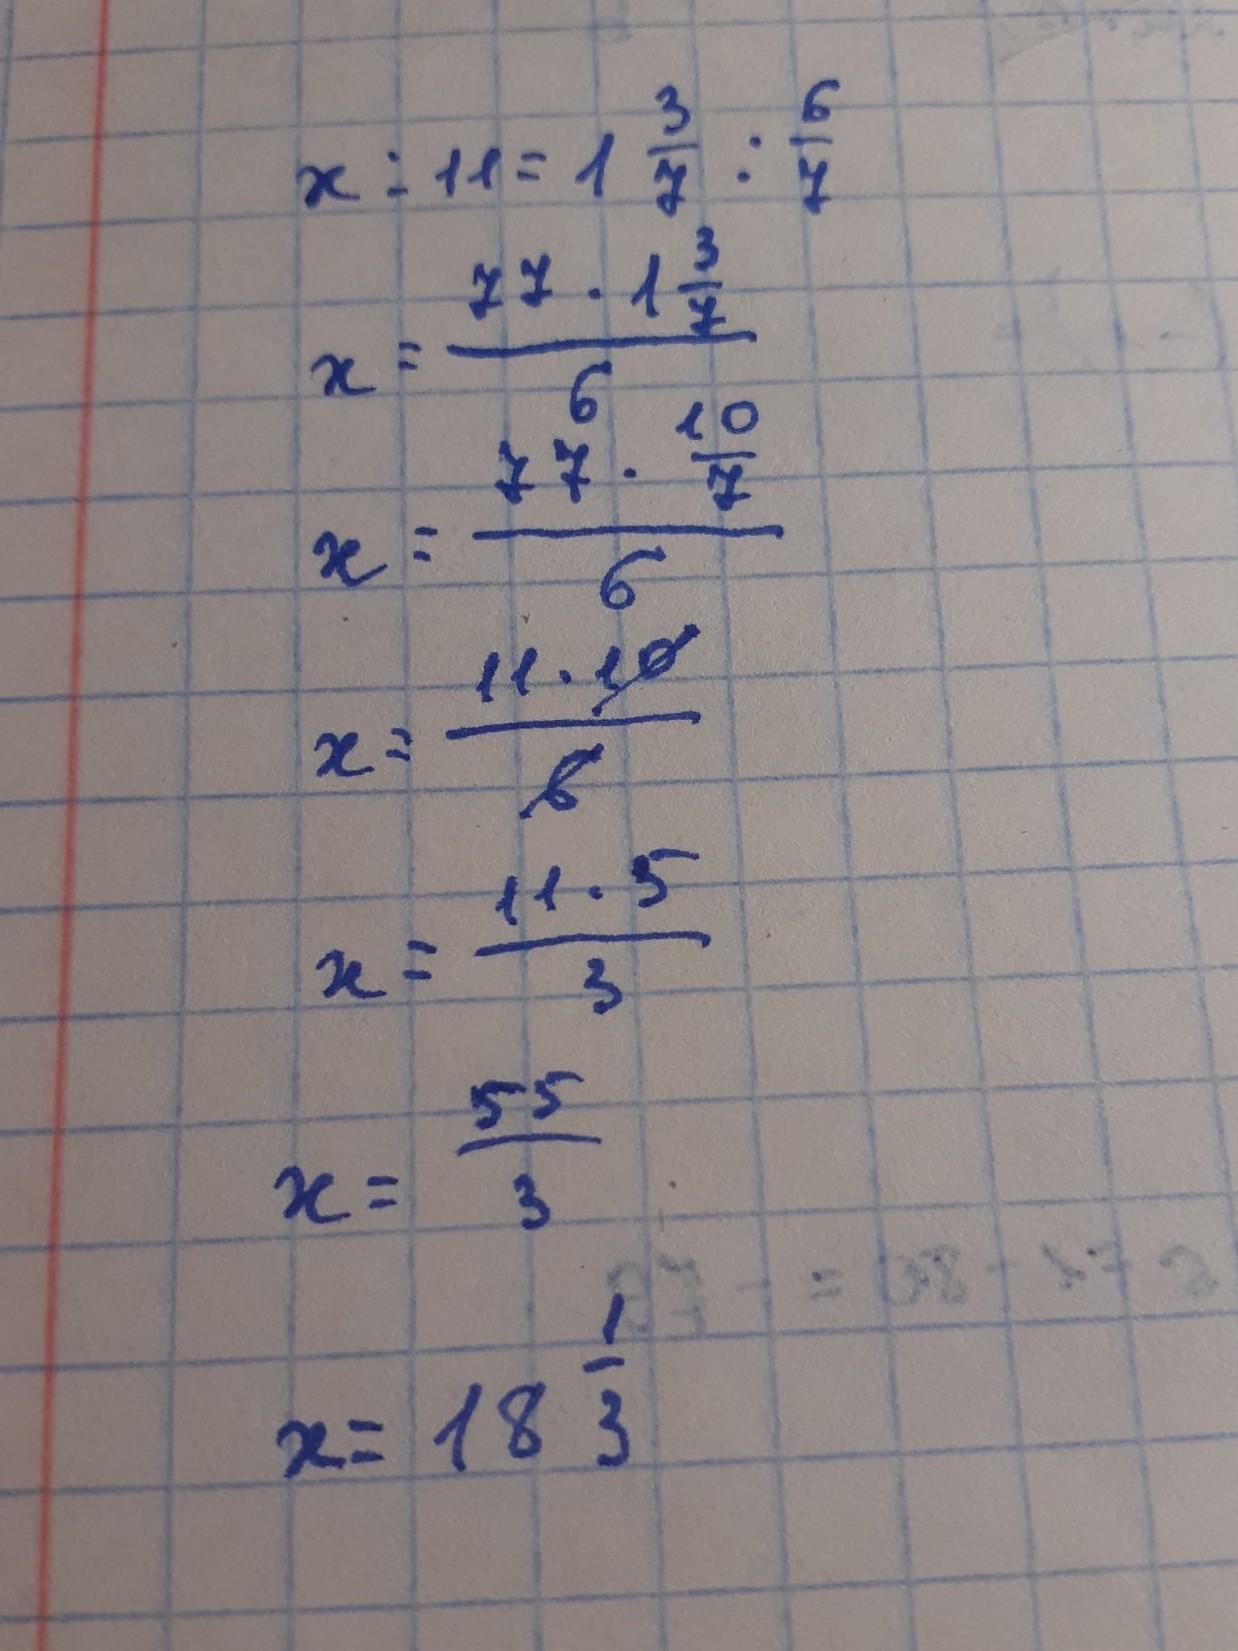 x : 11 = 1 3/7 : 6/7
x = (77 · 1 3/7)/6
x = (77 · 10/7)/6
x = (11 · 10)/6
x = (11 · 5)/3
x = 55/3
x = 18 1/3